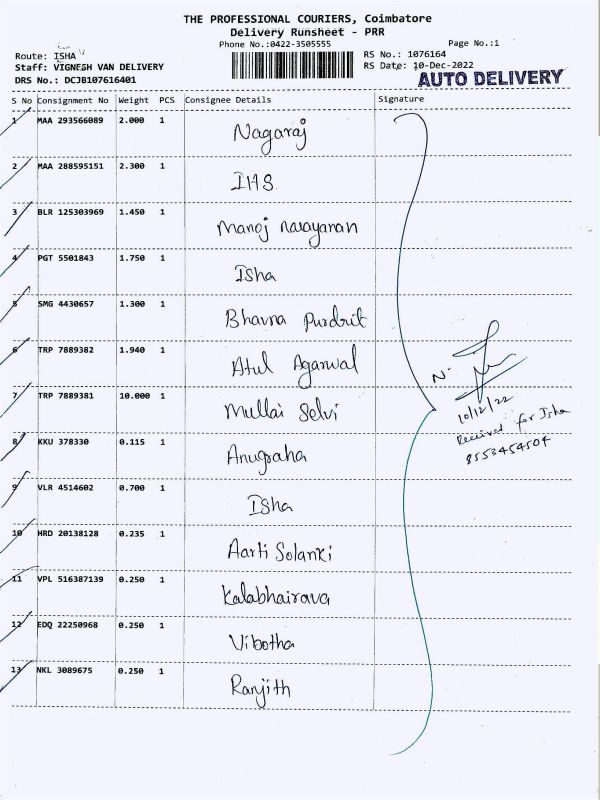 THE PROFESSIONAL COURIERS, Coimbatore
Delivery Runsheet - PRR
Phone No.:0422-3505555
Page No.:1
Route: ISHA
RS No.: 1076164
Staff: VIGNESH VAN DELIVERY
RS Date: 10-Dec-2022
DRS No.: DCJB107616401
AUTO DELIVERY
S No Consignment No Weight PCS Consignee Details Signature
1 MAA 293566089 2.000 1 Nagaraj
2 MAA 288595151 2.300 1 IHS
3 BLR 125303969 1.450 1 Manoj narayanan
4 PGT 5501843 1.750 1 Isha
5 SMG 4430657 1.300 1 Bhavna Purdrit
6 TRP 7889382 1.940 1 Atul Agarwal
7 TRP 7889381 10.000 1 Mullai Selvi
8 KKU 378330 0.115 1 Anugraha
9 VLR 4514602 0.700 1 Isha
10 HRD 20138128 0.235 1 Aarti Solanki
11 VPL 516387139 0.250 1 Kalabhairava
12 EDQ 22250968 0.250 1 Vibotha
13 NKL 3089675 0.250 1 Ranjith
N.
10/12/22
Received for Isha
8553454504